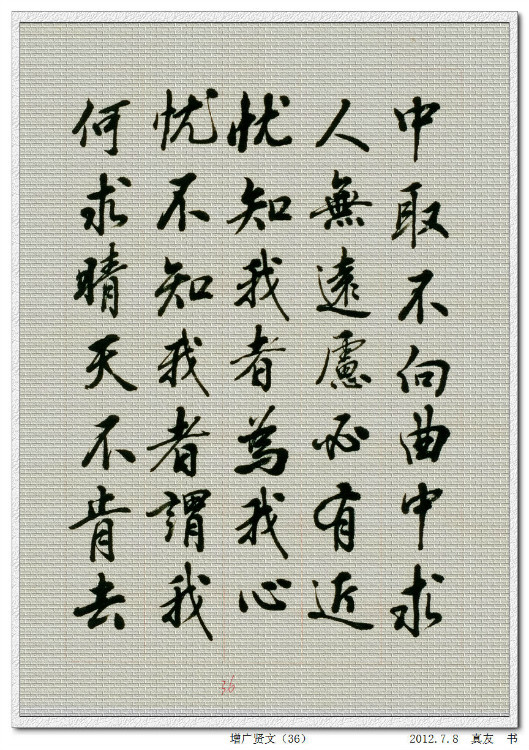 中取不向曲中求
人無遠慮必有近
忧知我者為我心
忧不知我者謂我
何求晴天不肯去
36
增广贤文（36）
2012.7.8 真友 书